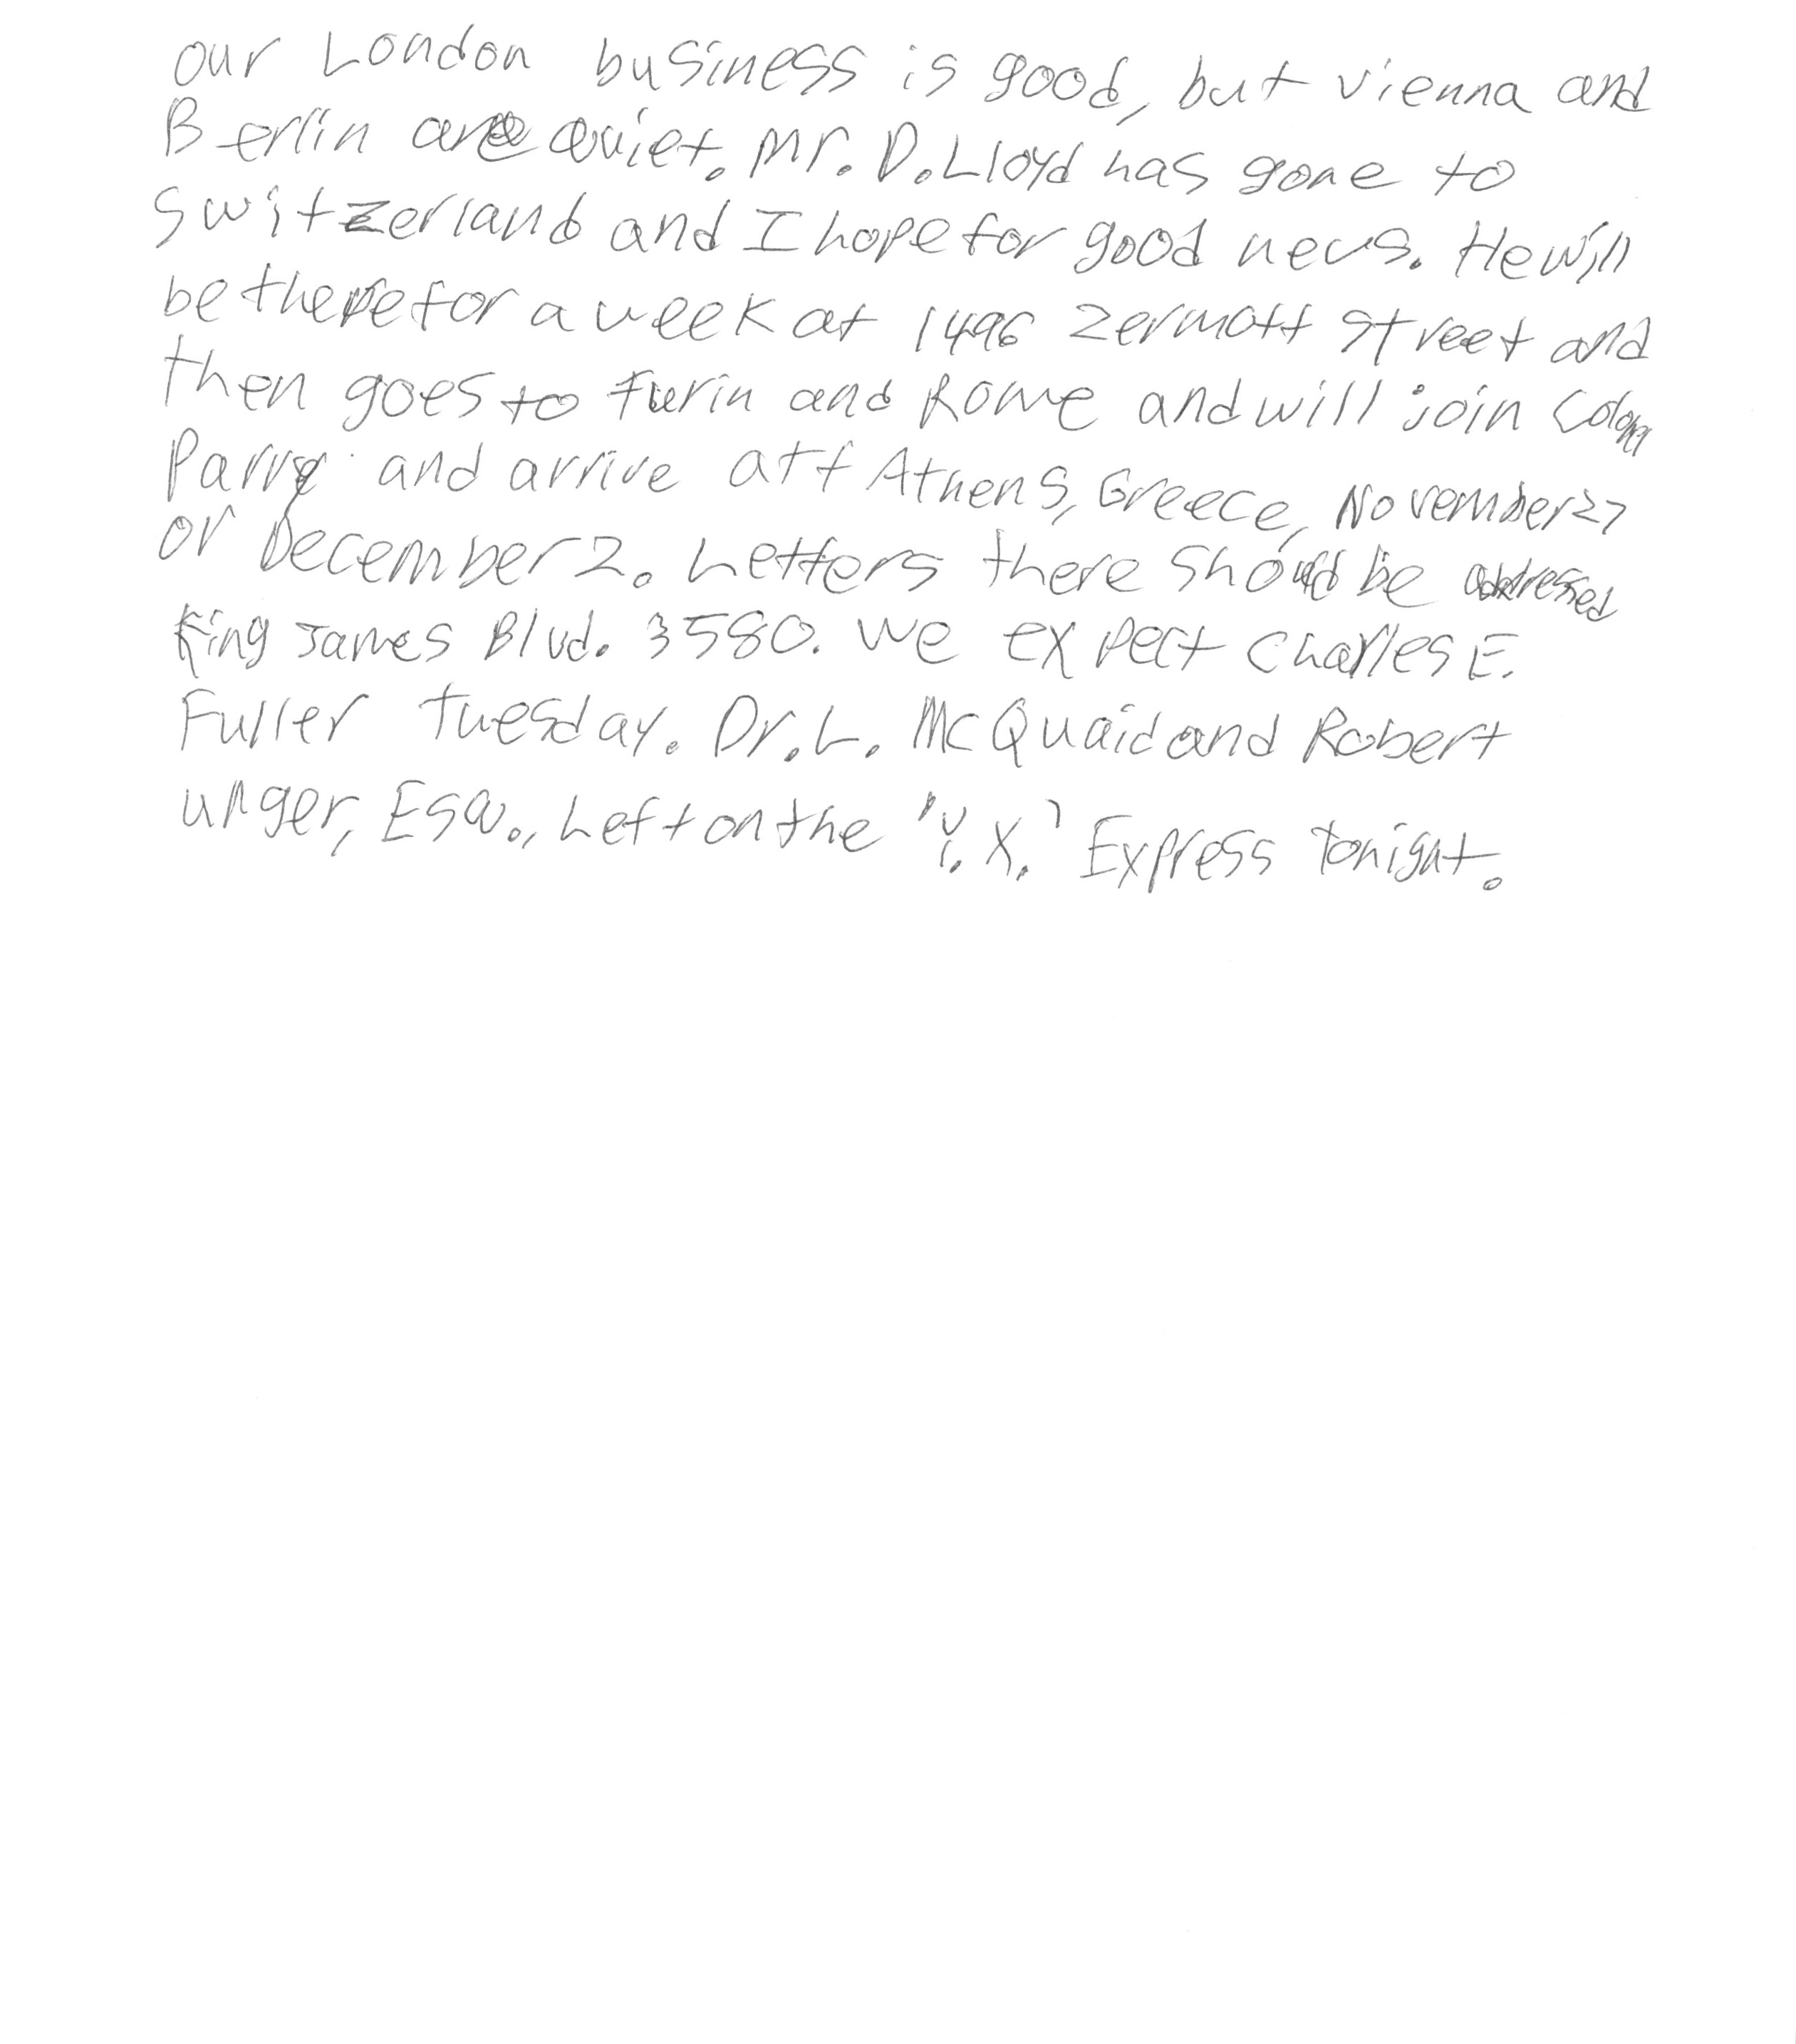 our London business is good, but vienna and
Berlin are quiet. Mr. D. Lloyd has gone to
Switzerland and I hope for good news. He will
be there for a week at 1496 Zermott Street and
then goes to Turin and Rome and will join Colon
Parry and arrive att Athens, Greece, November 27
or December 2. Letters there should be addressed
King James Blvd. 3580. We expect Charles E.
Fuller Tuesday. Dr. L. McQuaid and Robert
unger, Esq., Left on the 'Y. X.' Express tonight.